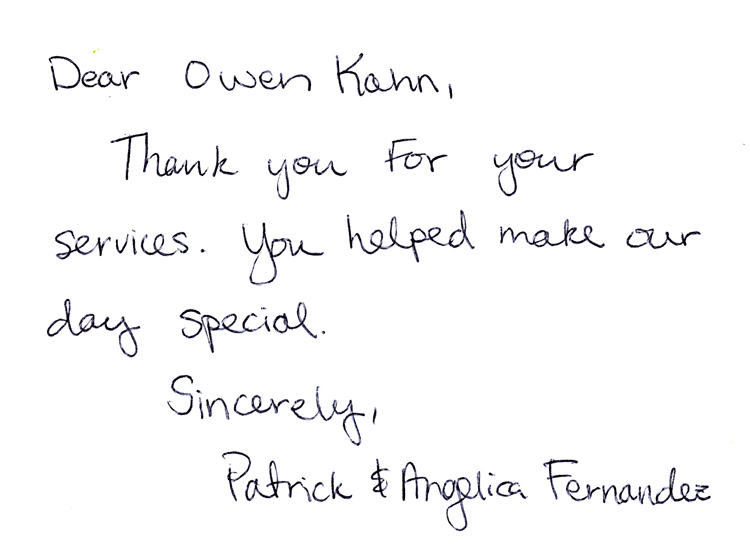 Dear Owen Kahn,
Thank you For your
services. You helped make our
day special.
Sincerely,
Patrick & Angelica Fernandez